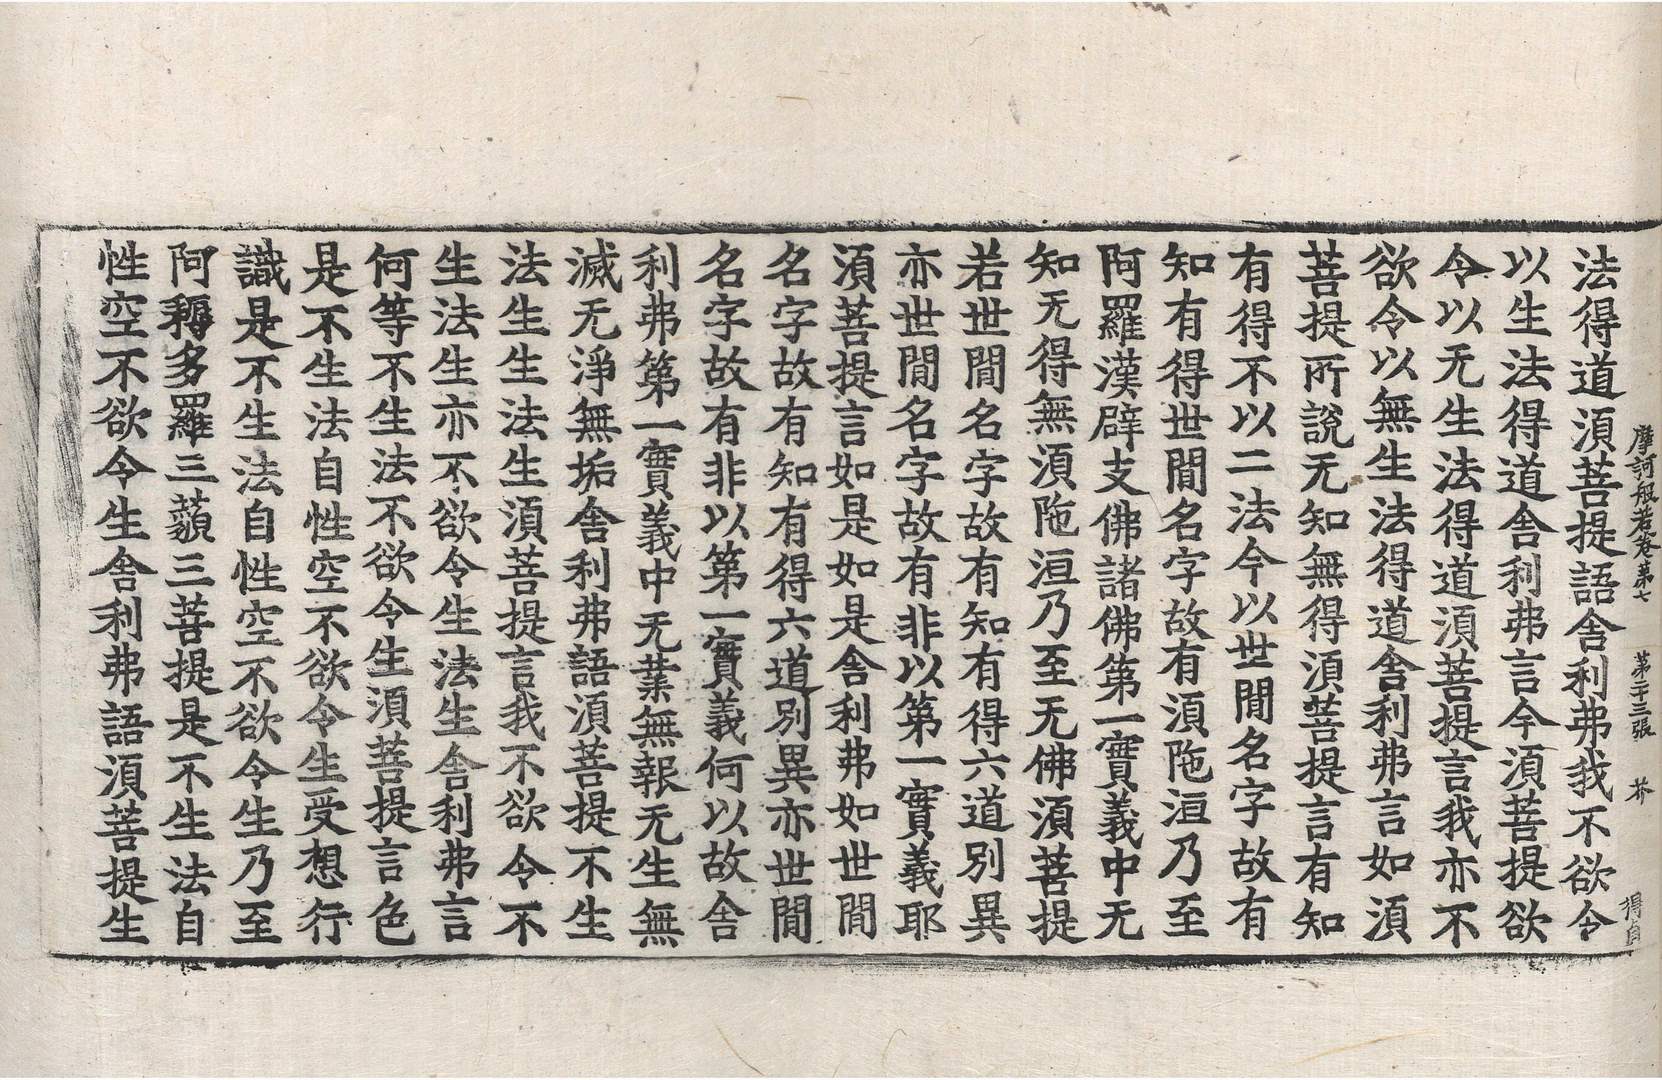 摩訶般若卷第七　第二十三張　芥
得自
法得道須菩提語舍利弗我不欲令
以生法得道舍利弗言今須菩提欲
令以无生法得道須菩提言我亦不
欲令以無生法得道舍利弗言如須
菩提所說无知無得須菩提言有知
有得不以二法今以世閒名字故有
知有得世閒名字故有須陁洹乃至
阿羅漢辟支佛諸佛第一實義中无
知无得無須陁洹乃至无佛須菩提
若世閒名字故有知有得六道別異
亦世閒名字故有非以第一實義耶
須菩提言如是如是舍利弗如世閒
名字故有知有得六道別異亦世閒
名字故有非以第一實義何以故舍
利弗第一實義中无業無報无生無
滅无淨無垢舍利弗語須菩提不生
法生生法生須菩提言我不欲令不
生法生亦不欲令生法生舍利弗言
何等不生法不欲令生須菩提言色
是不生法自性空不欲令生受想行
識是不生法自性空不欲令生乃至
阿耨多羅三藐三菩提是不生法自
性空不欲令生舍利弗語須菩提生